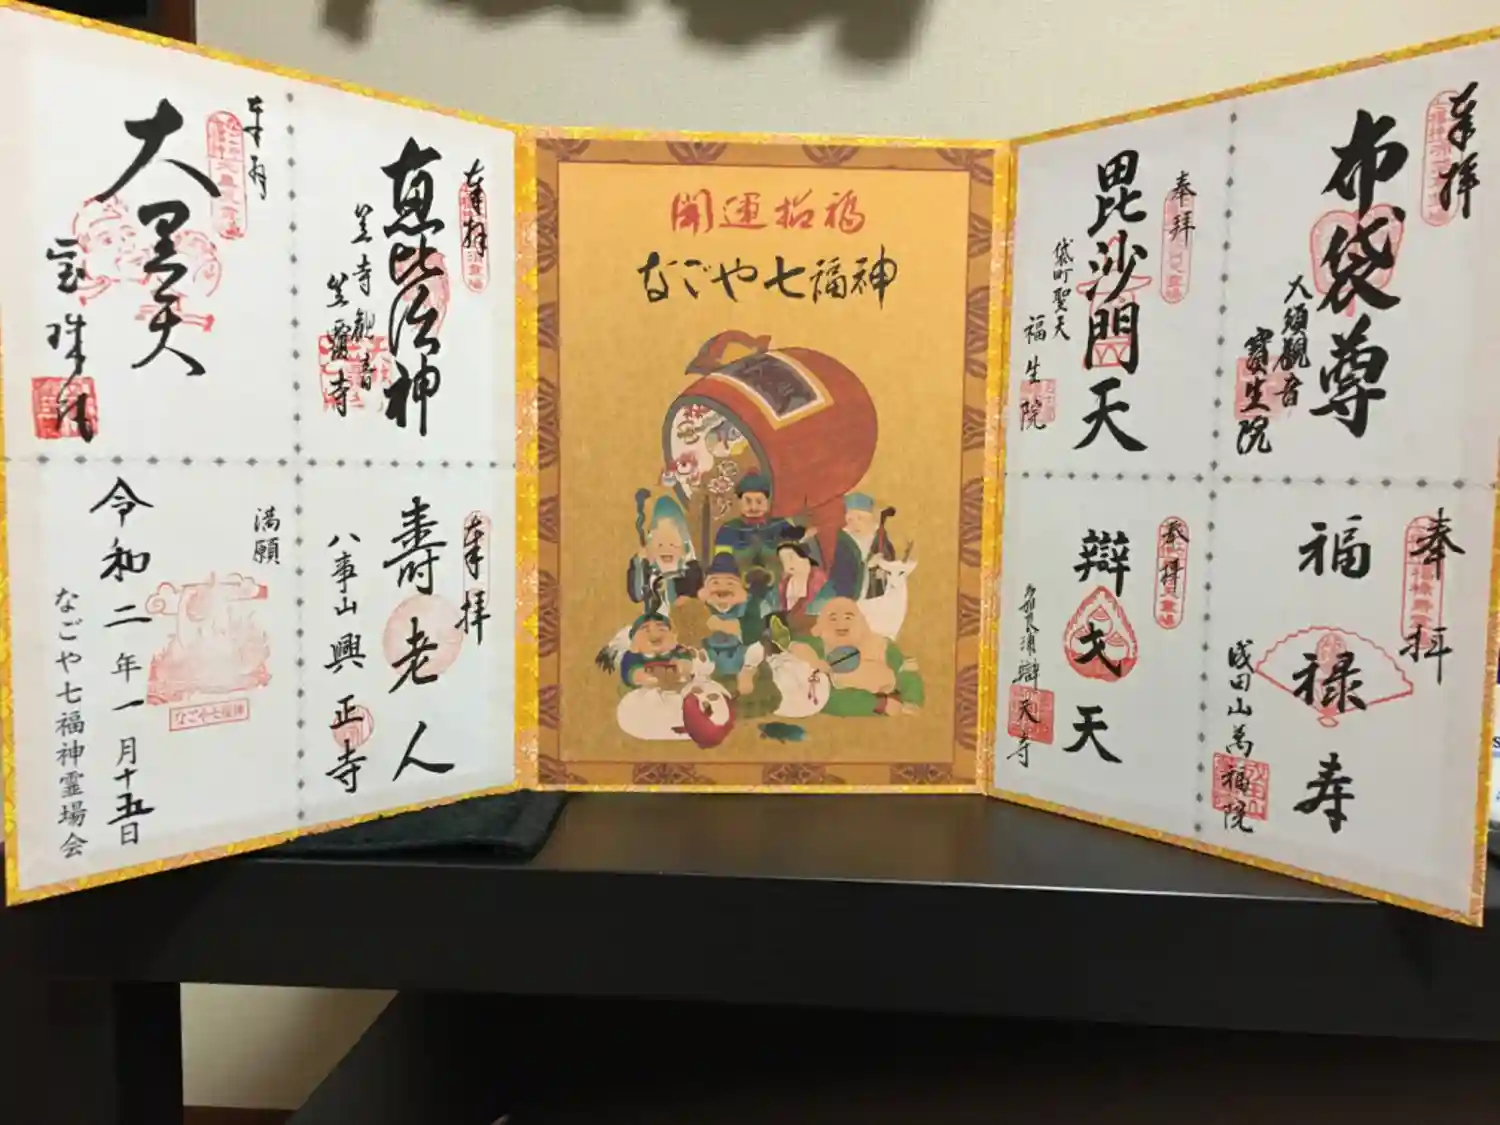 奉拝
布袋尊
大須観音
寳生院
奉拝
福禄寿
成田山萬福院
奉拝
毘沙門天
袋町聖天
福生院
奉拝
辯才天
辯天寺
開運招福
なごや七福神
奉拝
恵比須神
笠寺観音
笠覆寺
奉拝
寿老人
八事山興正寺
奉拝
大黒天
宝珠院
満願
なごや七福神
令和二年一月十五日
なごや七福神霊場会